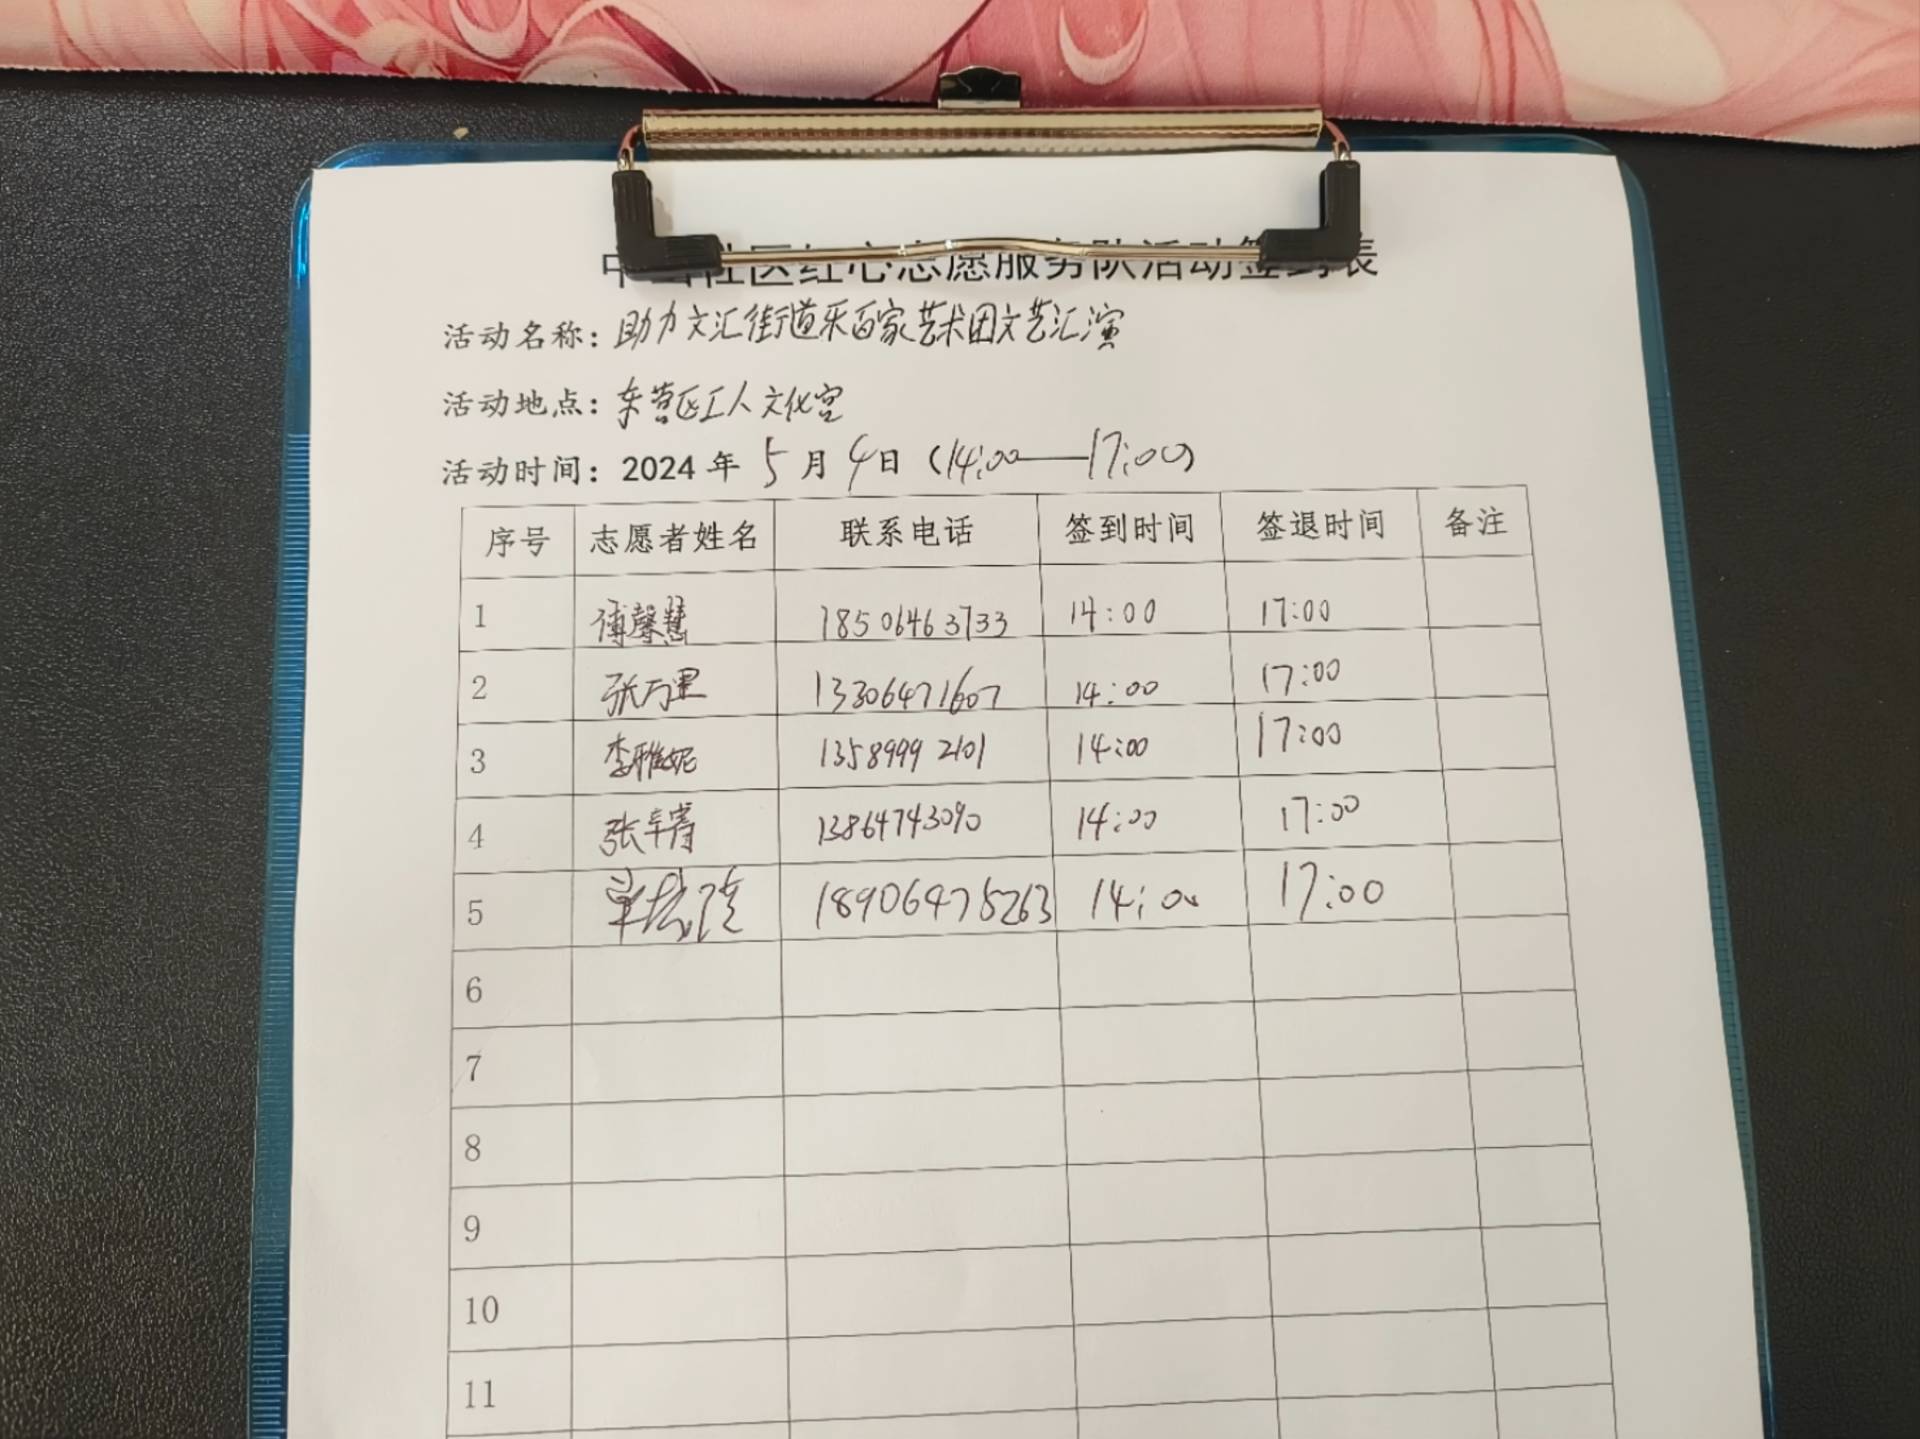 社区红心志愿服务队活动签到表
活动名称：助力文汇街道乐百家艺术团文艺汇演
活动地点：东营区工人文化宫
活动时间：2024年5月4日（14:00——17:00）
序号 志愿者姓名 联系电话 签到时间 签退时间 备注
1 傅馨慧 18506463733 14:00 17:00
2 张万里 13306471607 14:00 17:00
3 李雅妮 13589992101 14:00 17:00
4 张 13864743090 14:00 17:00
5 18906475263 14:00 17:00
6
7
8
9
10
11